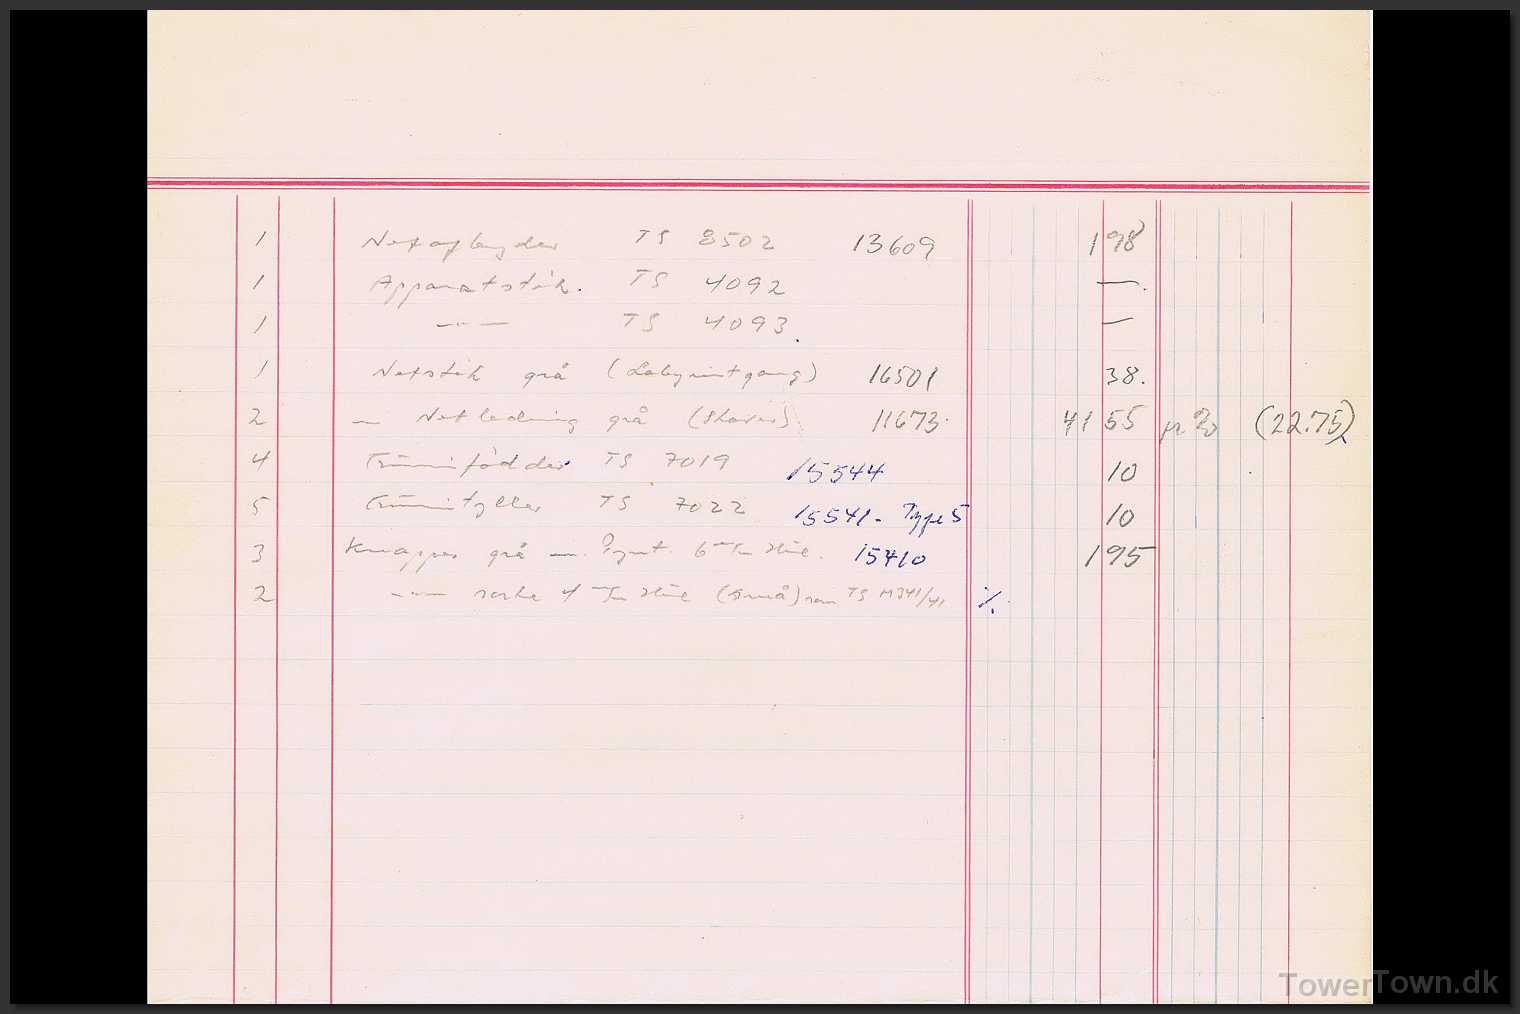 1 Netafbryder TS 8502 13609 198
1 Apparatstik. TS 4092 —.
1 -"- TS 4093. —
1 Netstik grå (Labyrintgang) 16501 38.
2 — Netledning grå (Shaver) 11673. 41 55 (22.75)
4 Gummifødder TS 7019 15544 10
5 Gummityller TS 7022 15541 - Type 5 10
3 Knapper grå m. Pynt. 6 m/m Hul. 15410 195
2 -"- sorte 4 m/m Hul (små) som TS M341/41 %.
TowerTown.dk